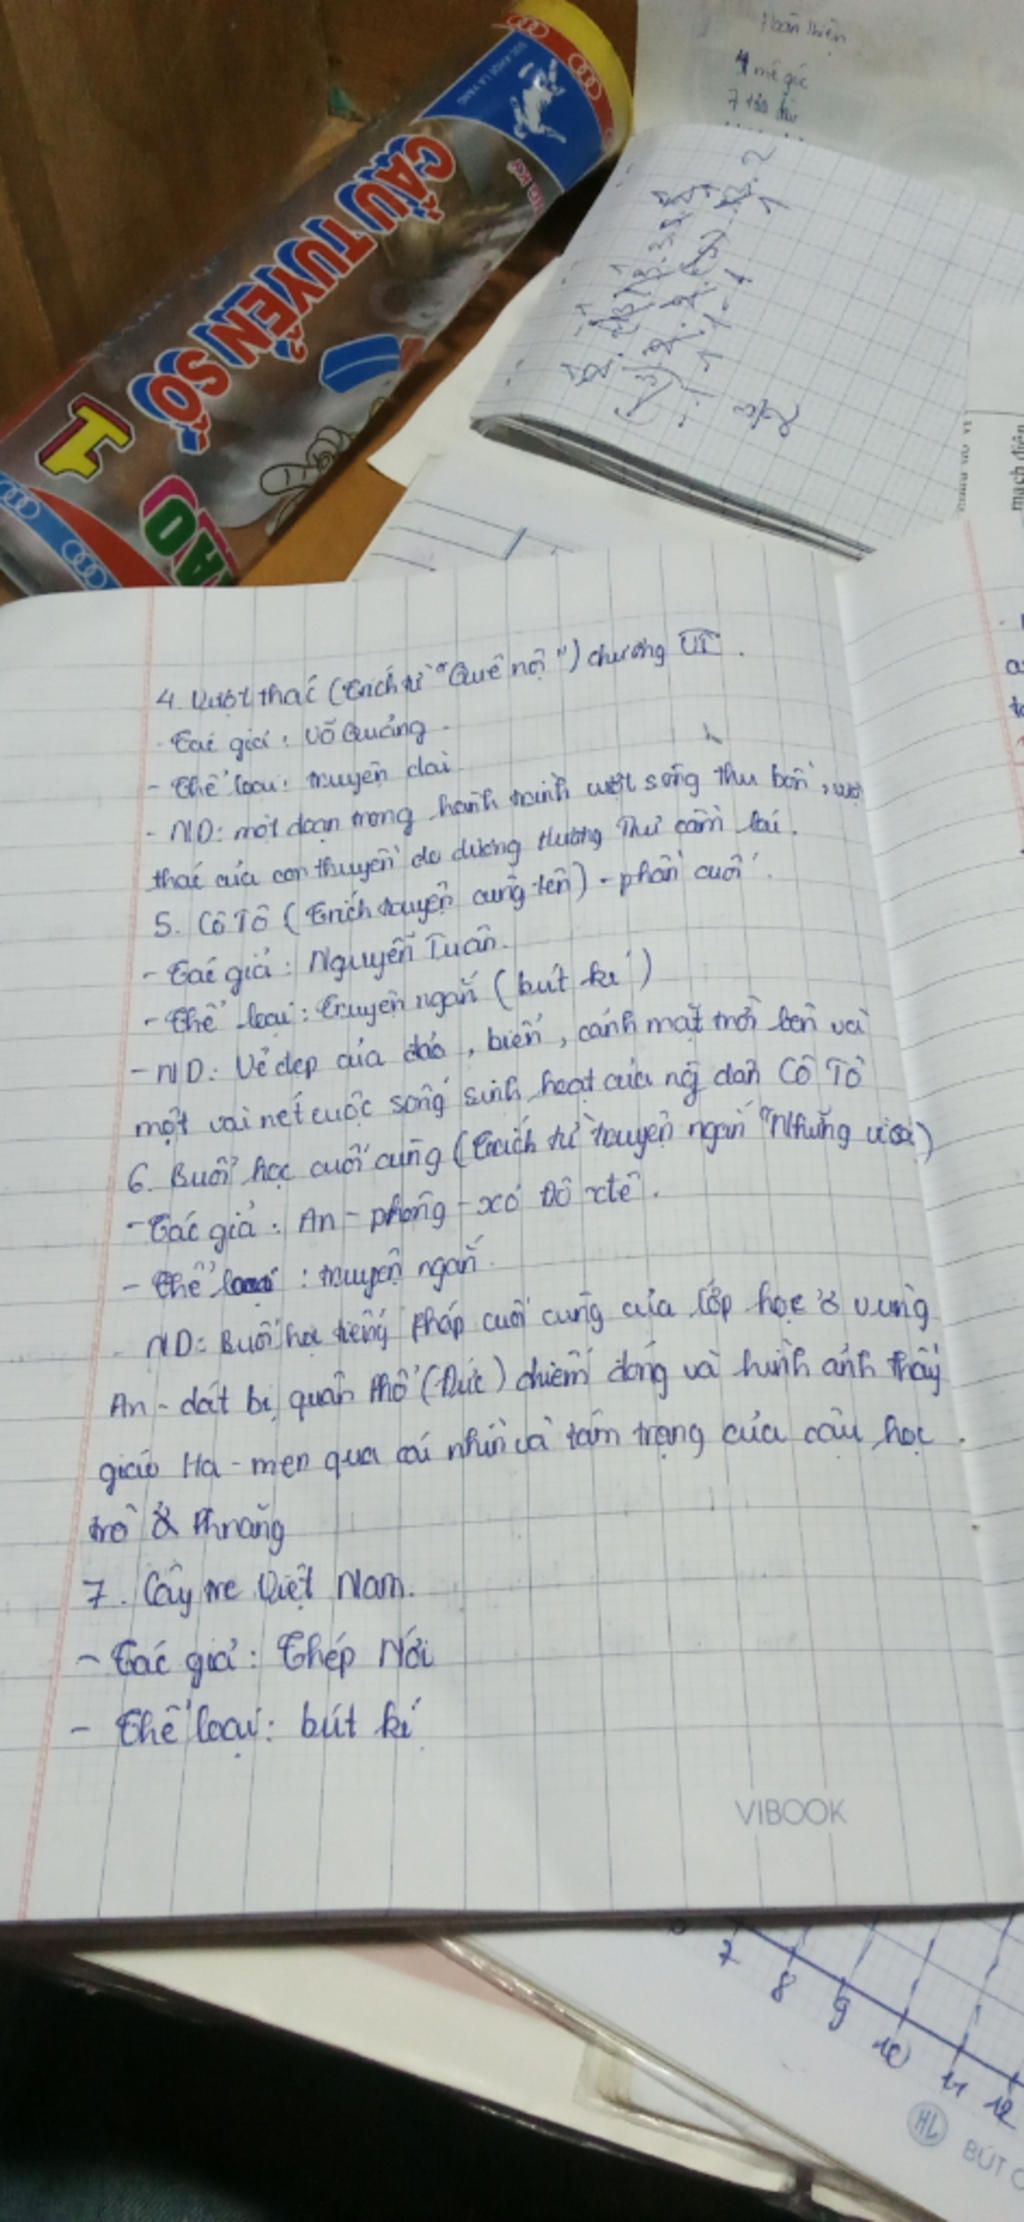 SỨC KHỎE LÀ VÀNG
CẦU TUYỂN SỐ
1
Hoàn thiện
4 mê gác
mạch điện
4. Vượt thác (trích từ "Quê nội") chương VI.
- Tác giả: Võ Quảng.
- Thể loại: truyện dài.
- ND: một đoạn trong hành trình vượt sông thu bồn, vượt
thác của con thuyền do dượng Hương Thư cầm lái.
5. Cô Tô (Trích truyện cùng tên) - phần cuối.
- Tác giả: Nguyễn Tuân.
- Thể loại: truyện ngắn (bút kí)
- ND: Vẻ đẹp của đảo, biển, cảnh mặt trời lên và
một vài nét cuộc sống sinh hoạt của ng dân Cô Tô
6. Buổi học cuối cùng (Trích từ truyện ngắn "Những vì sao)
- Tác giả: An - phông - xơ Đô xtê.
- Thể loại: truyện ngắn.
- ND: Buổi học tiếng Pháp cuối cùng của lớp học ở vùng
An - dát bị quân Phổ (Đức) chiếm đóng và hình ảnh thầy
giáo Ha - men qua cái nhìn và tâm trạng của cậu học
trò & Phrăng
7. Cây tre Việt Nam.
- Tác giả: Thép Mới
- Thể loại: bút kí
VIBOOK
7
8
9
10
11
12
HL
BÚT